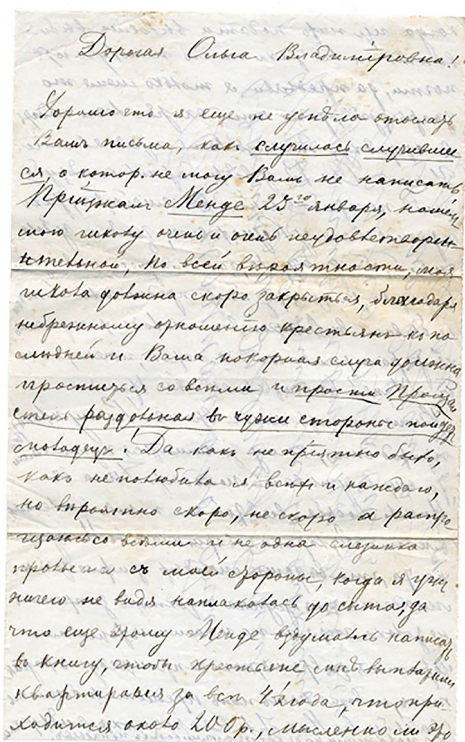 Дорогая Ольга Владимiровна!
Хорошо что я еще не успѣла отослать
Вамъ письма, какъ случилось случившее
ся, о котор. не могу Вамъ не написать
Прiѣзжалъ Менде 25го января, нашелъ
мою школу очень и очень неудовлетворен
ительной, по всей вѣроятности, моя
школа должна скоро закрыться, благодаря
небрежному отношенiю крестьянъ къ по
слѣдней и Ваша покорная слуга должна
проститься со всѣми и прости Прощай
степь раздольная въ чужи стороны пойду
! Да какъ не прiятно было,
какъ не полюбила я всѣхъ и каждаго,
но вѣроятно скоро, не скоро а распро
щаюсь со всѣми и не одна слезинка
прольется съ моей стороны, когда я уже
ничего не видя наплакалась до сыта, да
что еще этому Менде вздумалъ написать
въ книгу, чтобы крестьяне мнѣ выплатили
квартирныя за всѣ 4 года, что при
ходится около 200 р., мыслимо ли это